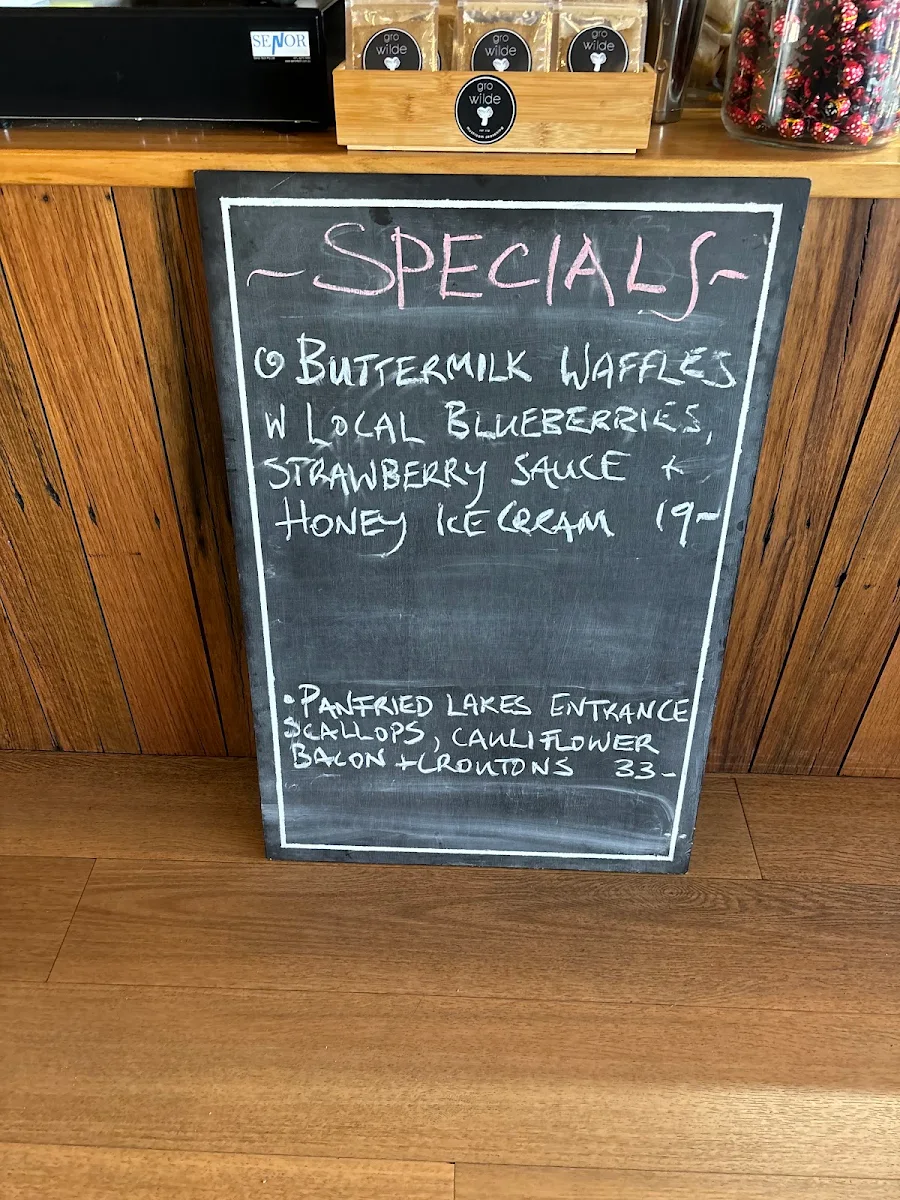 SENOR
gro
wilde
gro
wilde
gro
wilde
gro
wilde
~ SPECIALS ~
BUTTERMILK WAFFLES
W LOCAL BLUEBERRIES,
STRAWBERRY SAUCE +
HONEY ICE CREAM 19-
• PANFRIED LAKES ENTRANCE
SCALLOPS, CAULIFLOWER
BACON + CROUTONS 33-